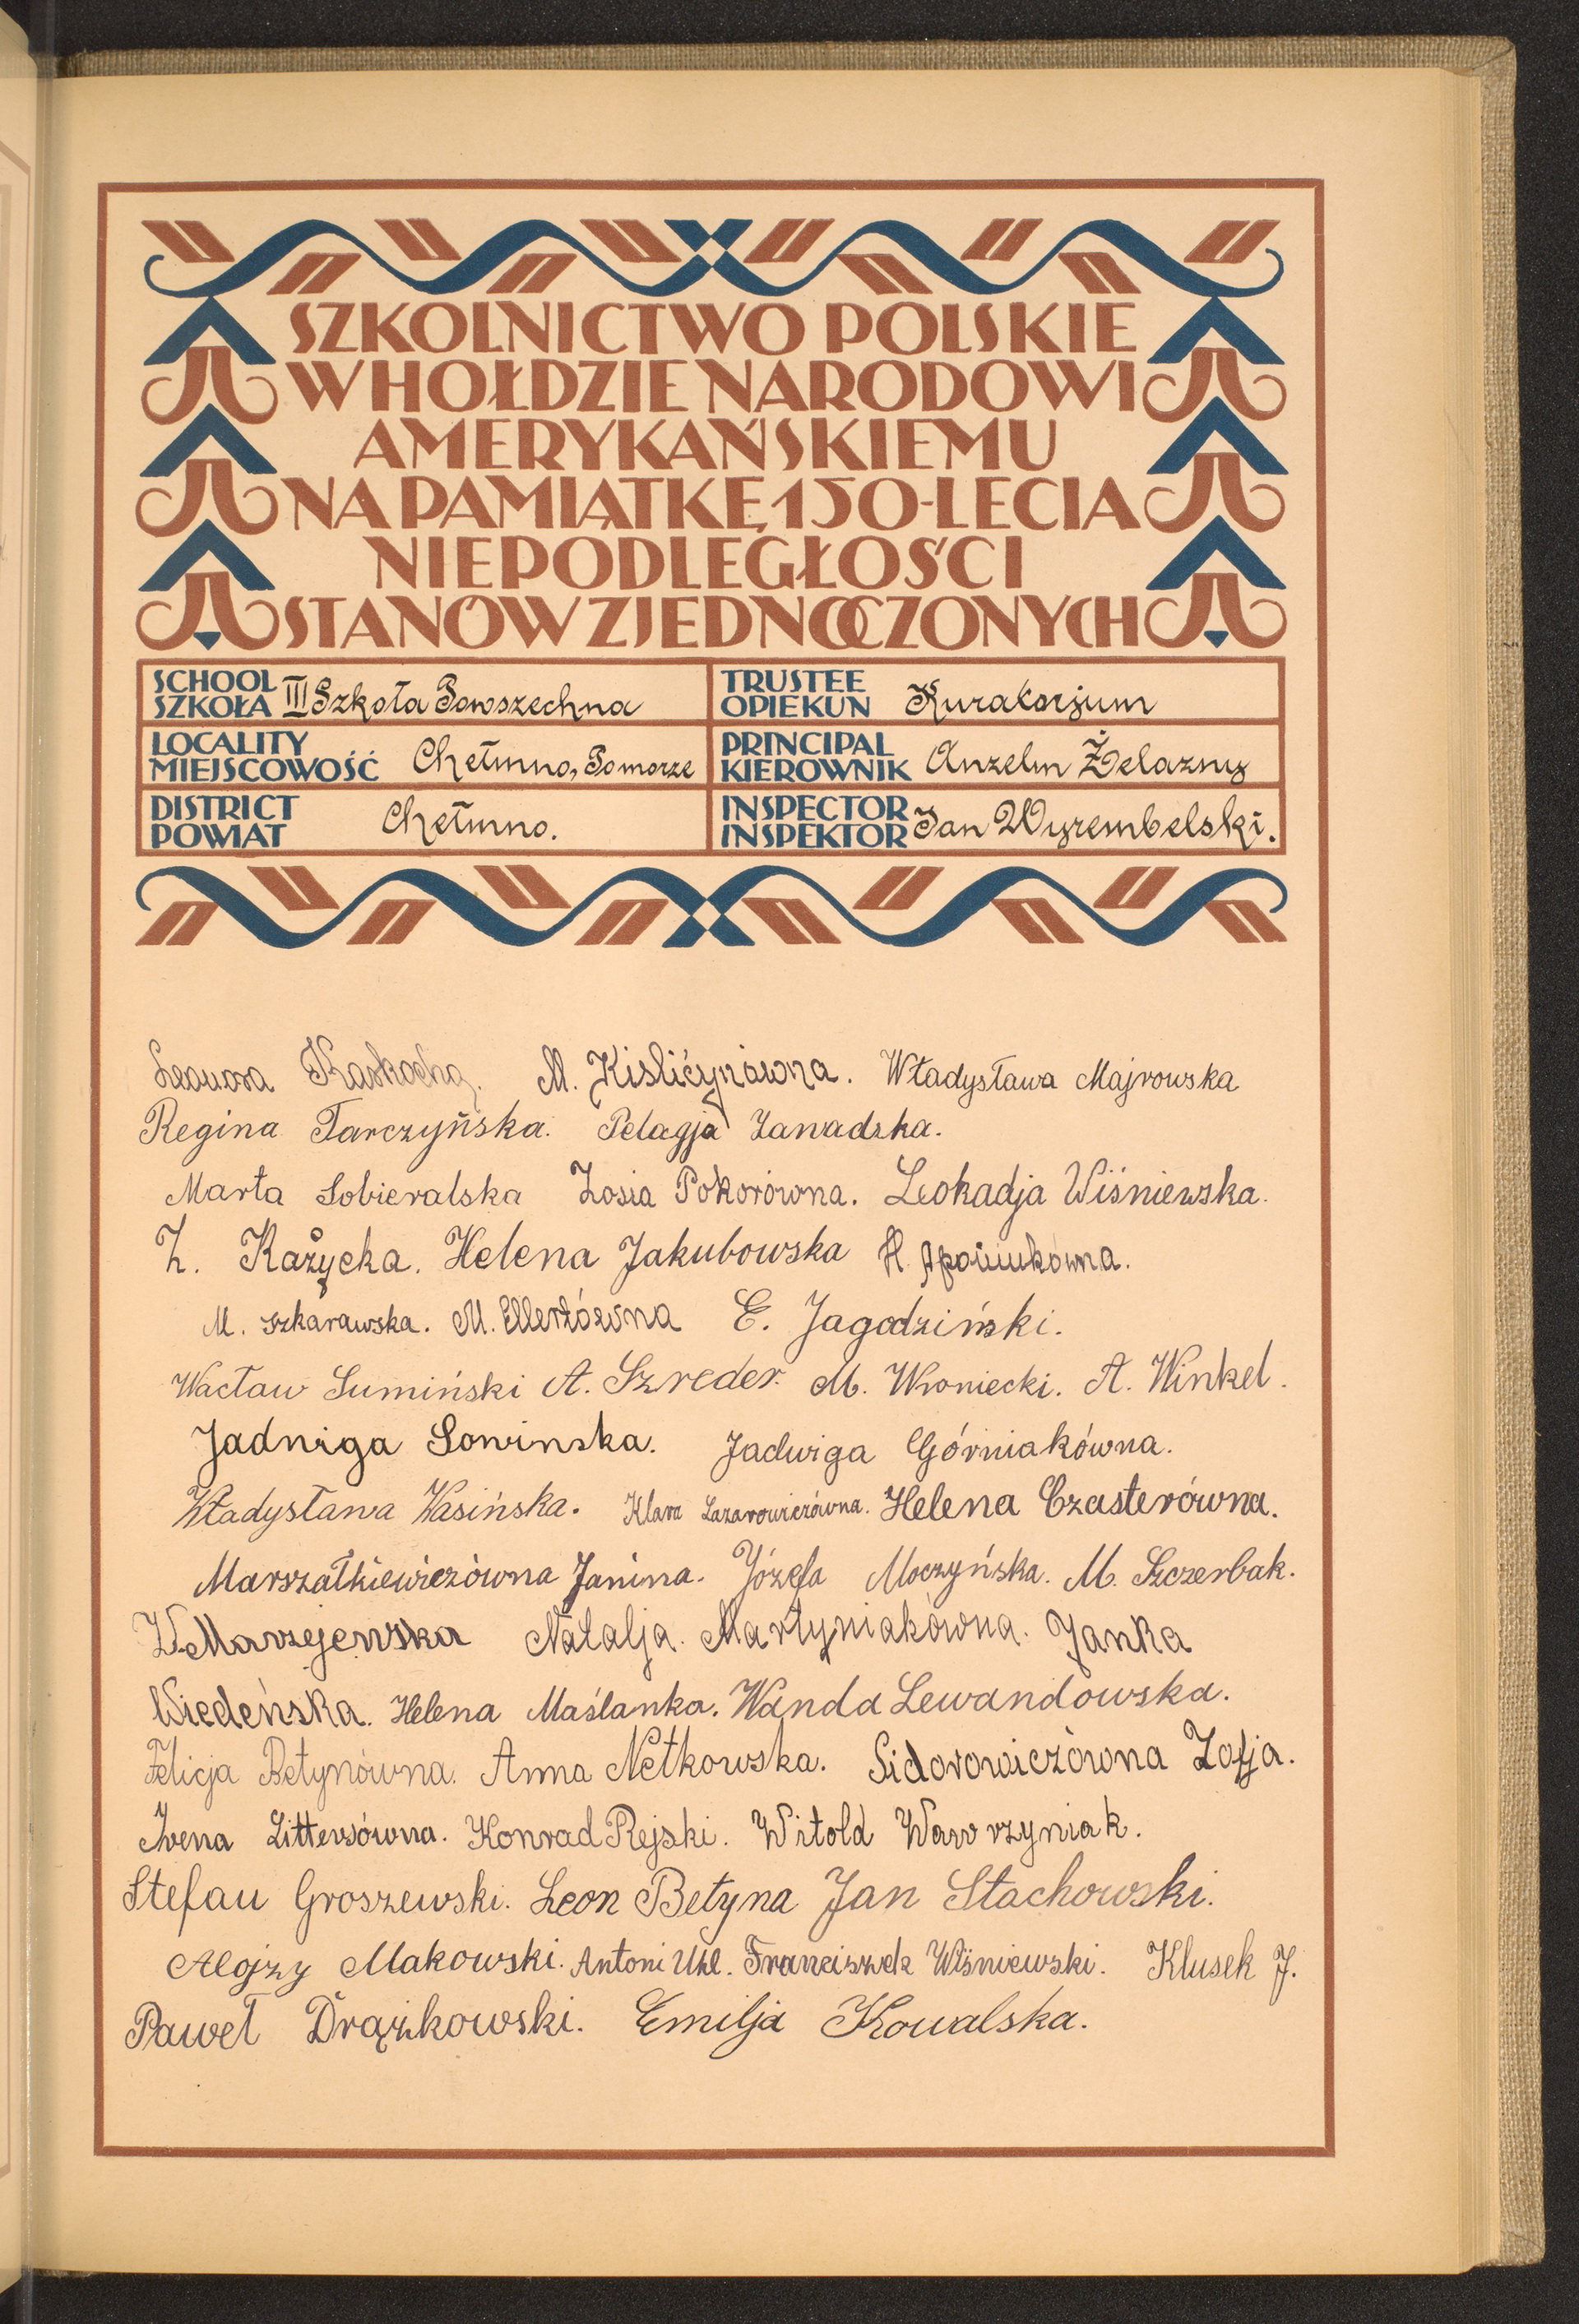 SZKOLNICTWO POLSKIE
W HOŁDZIE NARODOWI
AMERYKAŃSKIEMU
NA PAMIĄTKĘ 150-LECIA
NIEPODLEGŁOŚCI
STANÓW ZJEDNOCZONYCH
SCHOOL
SZKOŁA III Szkoła Powszechna
LOCALITY
MIEJSCOWOŚĆ Chełmno, Pomorze
DISTRICT
POWIAT Chełmno.
TRUSTEE
OPIEKUN Kuratorjum
PRINCIPAL
KIEROWNIK Anzelm Żelazny
INSPECTOR
INSPEKTOR Jan Wyrembelski.
M. Władysława Majrowska
Regina Tarczyńska. Pelagja Zawadzka.
Marta Sobieralska Zosia Pokorówna. Leokadja Wiśniewska.
Z. Każycka. Helena Jakubowska H.
M. Szkarawska. M. E. Jagodziński.
Wacław Sumiński A. Szreder. M. Wroniecki. A. Winkel.
Jadwiga Sowinska. Jadwiga Górniakówna.
Władysława Wasińska. Klara Lazarowiczówna. Helena Czasterówna.
Marszałkiewiczówna Janina. Józefa Moczyńska. M. Szczerbak.
Natalja. Martyniakówna. Janka
Wiedeńska. Helena Maślanka. Wanda Lewandowska.
Felicja Betynówna. Anna Netkowska. Sidorowiczówna Zofja.
Irena Littersówna. Konrad Rejski. Witold Wawrzyniak.
Stefan Groszewski. Leon Betyna Jan Stachowski.
Alojzy Makowski. Antoni Uhl. Franciszek Wiśniewski. Klusek J.
Paweł Drążkowski. Emilja Kowalska.